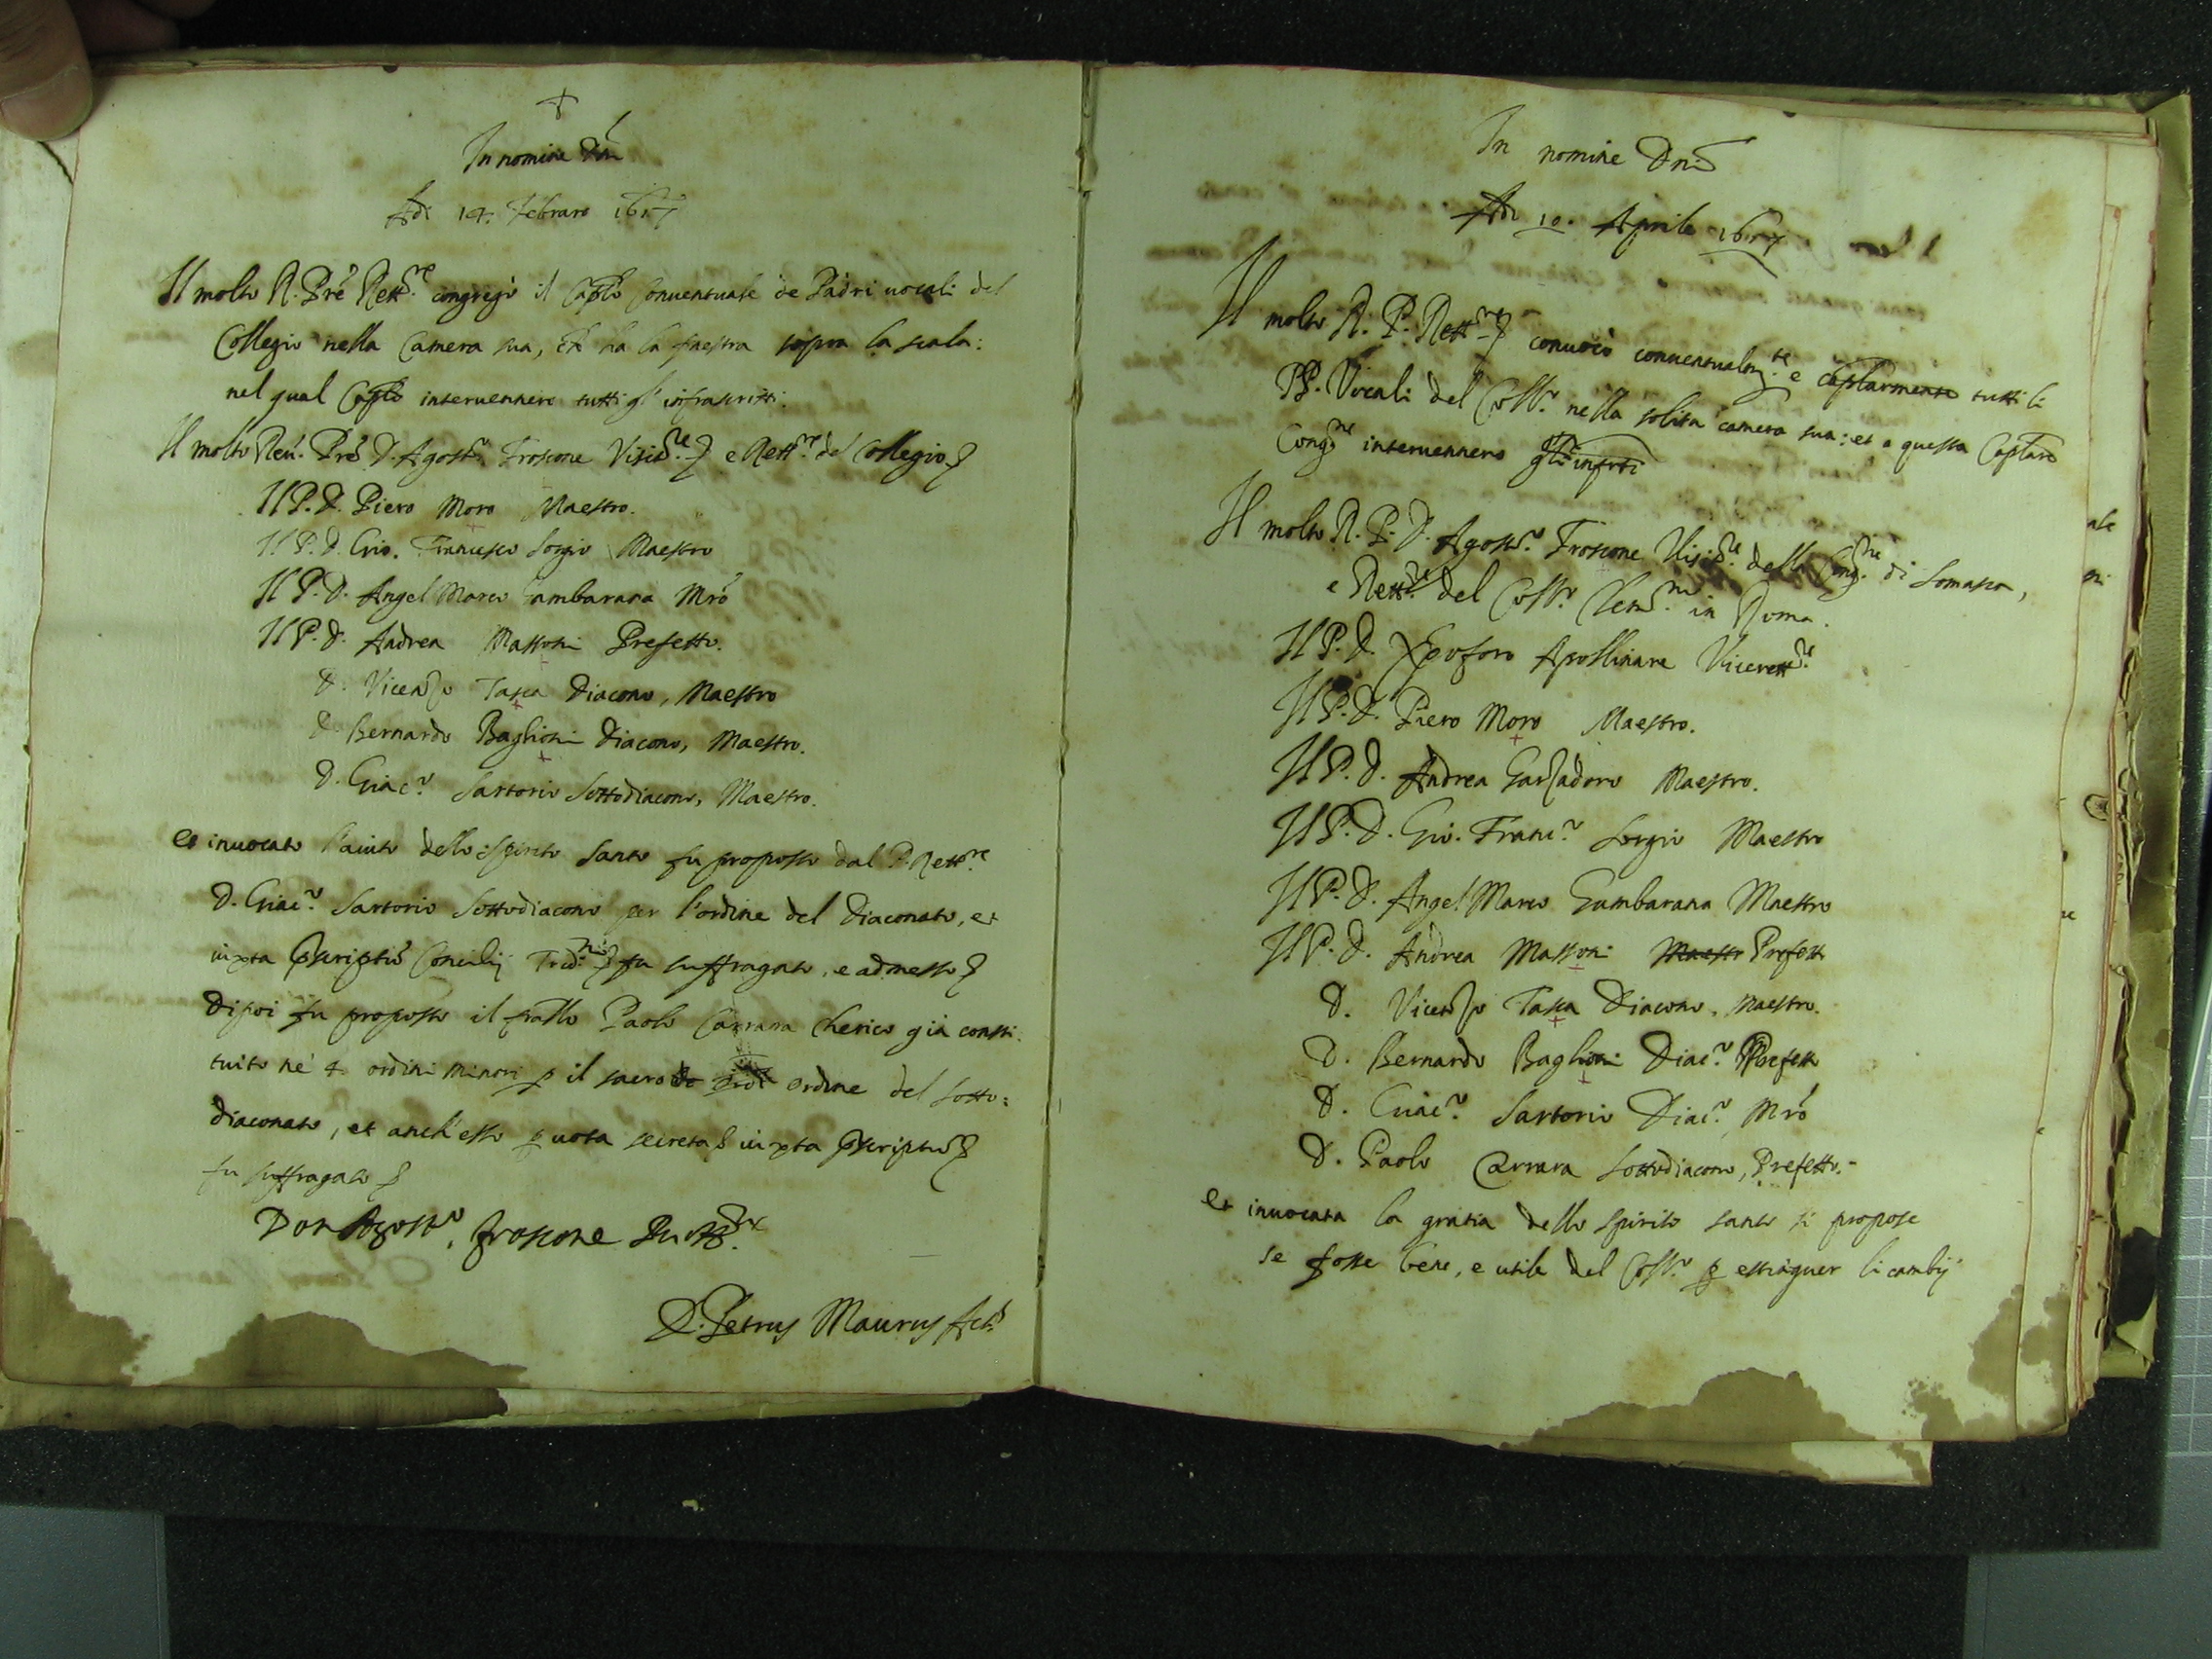 In nomine Dni
Adi 14. febraro 1617
Il molto R. Pre Rettre congregò il Caplo Conuentuale de Padri uocali del
Collegio nella Camera sua, che ha la finestra sopra la scala:
nel qual Caplo interuennero tutti gl' infrascritti.
Il molto Reu. Pre D. Agosto Froscone Visitre e Rettre del Collegio
Il P. D. Piero Moro Maestro.
Il P. D. Gio. Francesco Sorgio Maestro
Il P. D. Angel Marco Gambarana Mro
Il P. D. Andrea Massoni Prefetto.
D. Vicenzo Tasca Diacono, Maestro
D. Bernardo Baglioni Diacono, Maestro.
D. Giaco Sartorio Sottodiacono, Maestro.
et inuocato l'aiuto dello spirito santo fu proposto dal P. Rettre
D. Giaco Sartorio Sottodiacono per l'ordine del Diaconato, et
iuxta pscriptũ Concilij Tridni fu suffragato, e admesso
Dipoi fu proposto il frallo Paolo Carrara cherico già consti.
tuito nè 4 ordini minori p il sacro ordine del sotto:
diaconato, et anch'esso p uota secreta iuxta pscriptũ
fu suffragato
Don Agosto. froscone Rettre
D. Petrus Maurus
In nomine Dni
Adi 10. Aprile 1617
Il molto R. P. Rettre conuocò conuentualmte e caplarmente tutti li
PP. Vocali del Collo nella solita camera sua: et a questa Caplare
Congne interuennero gli infrti
Il molto R. P. D. Agosto Froscone Visitre della Congne di Somasca,
e Rettre del Collo Clemno in Roma.
Il P. D. Xpoforo Apollinare Vicerettre
Il P. D. Piero Moro Maestro.
Il P. D. Andrea Garzadoro Maestro.
Il P. D. Gio. Franco Sorgio Maestro
Il P. D. Angel Marco Gambarana Maestro
Il P. D. Andrea Massoni Maestr Prefett
D. Vicenzo Tasca Diacono, Maestro.
D. Bernardo Baglioni Diaco Prefett
D. Giaco Sartorio Diaco Mro
D. Paolo Carrara Sottodiacono, Prefetto.
et inuocata la gratia dello spirito santo si propose
se fosse bene, e utile del Collo p estinguer li cambij